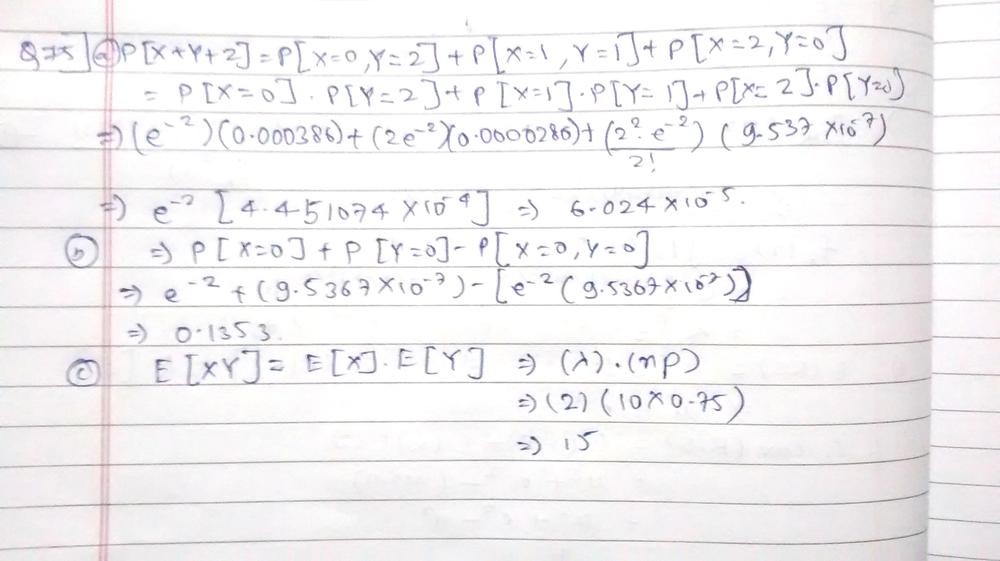 Q75] ⓐ P[X+Y+2] = P[X=0, Y=2] + P[X=1, Y=1] + P[X=2, Y=0]
= P[X=0] . P[Y=2] + P[X=1] . P[Y=1] + P[X=2] . P[Y=0]
⇒ (e⁻²)(0.000386) + (2e⁻²)(0.0000286) + (2² e⁻² / 2!) (9.537 × 10⁻⁷)
⇒ e⁻² [4.451074 × 10⁻⁴] ⇒ 6.024 × 10⁻⁵.
ⓑ ⇒ P[X=0] + P[Y=0] - P[X=0, Y=0]
⇒ e⁻² + (9.5367 × 10⁻⁷) - [e⁻² (9.5367 × 10⁻⁷)]
⇒ 0.1353.
ⓒ E[XY] = E[X] . E[Y] ⇒ (λ) . (np)
⇒ (2) (10 × 0.75)
⇒ 15